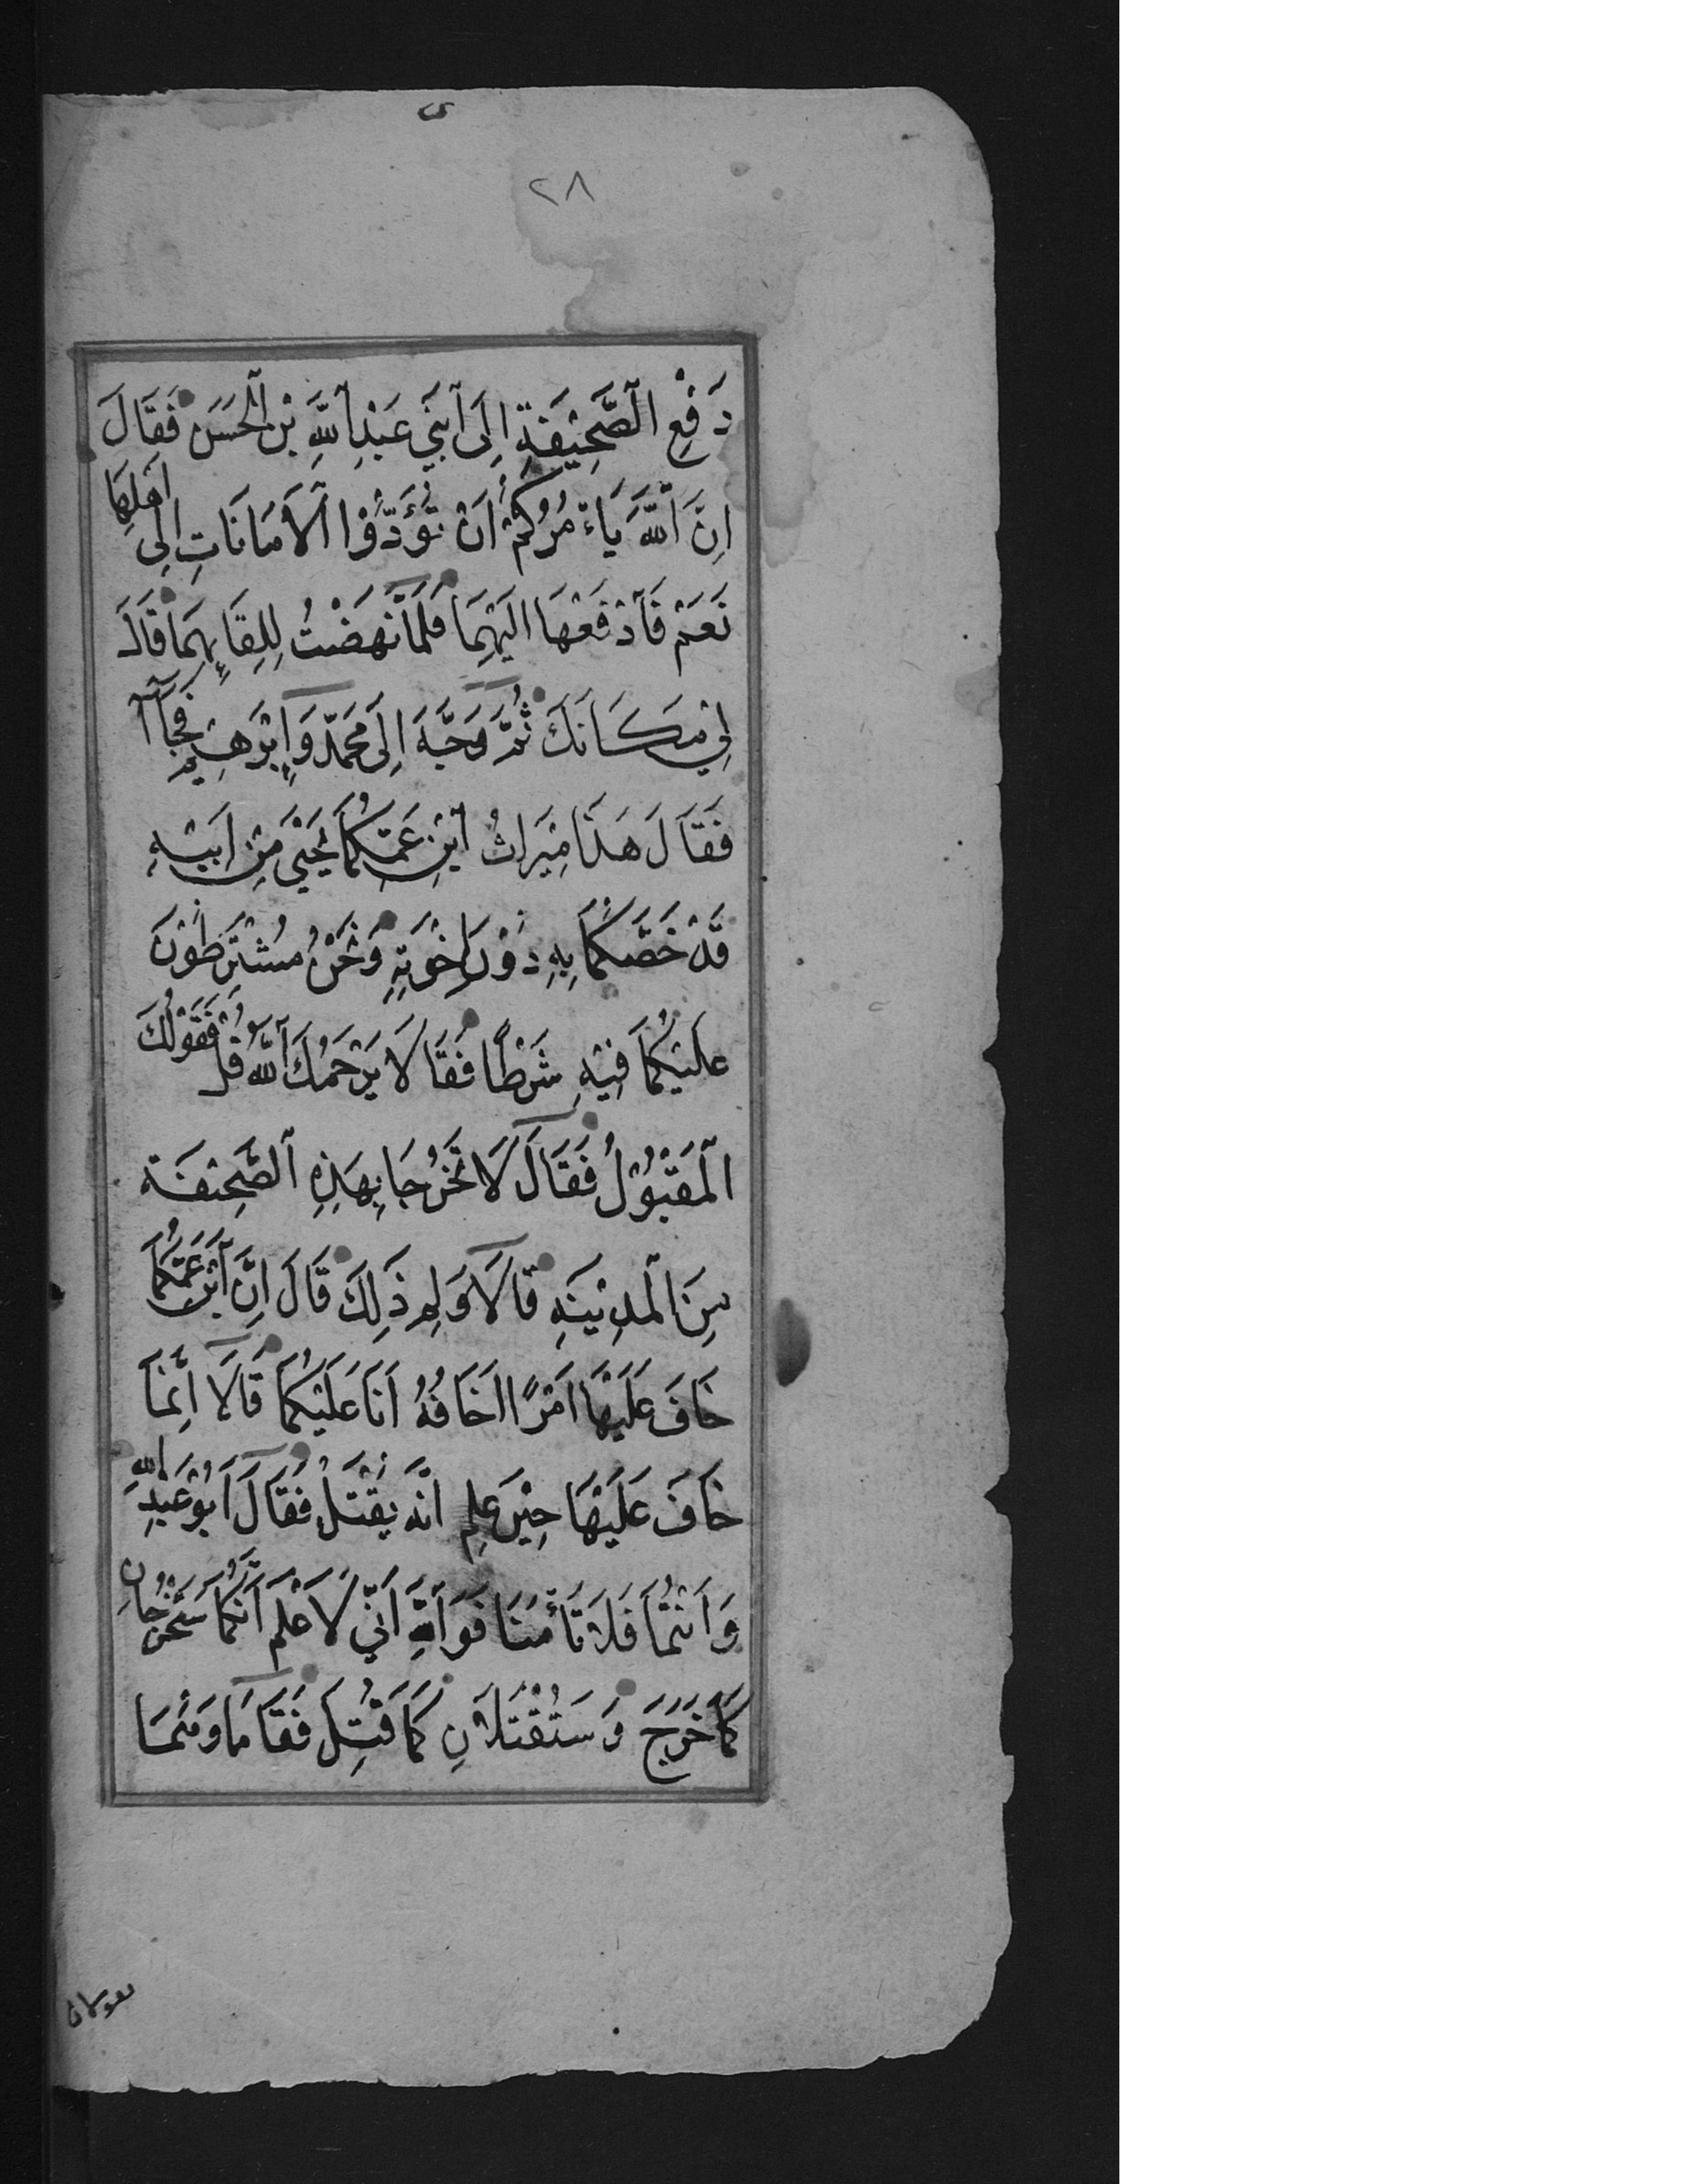 ٢٨
دَفْعِ الصَّحِيْفَةِ اِلَى ابْنَيْ عَبْدِ اللّٰهِ بْنِ الْحَسَنِ فَقَالَ
اِنَّ اللّٰهَ يَاءْمُرُكُمْ اَنْ تُؤَدُّوْا الْاَمَانَاتِ اِلٰى اَهْلِهَا
نَعَمْ فَادْفَعْهَا اِلَيْهِمَا فَلَمَّا نَهَضْتُ لِلِقَائِهِمَا قَالَ
لِيْ مَكَانَكَ ثُمَّ وَجَّهَ اِلَى مُحَمَّدٍ وَاِبْرٰهِيْمَ فَجَاآ
فَقَالَ هَذَا مِيْرَاثُ ابْنِ عَمِّكُمَا يَحْيٰى مِنْ اَبِيْهِ
قَدْ خَصَّكُمَا بِهِ دُوْنَ اِخْوَتِهِ وَنَحْنُ مُشْتَرِطُوْنَ
عَلَيْكُمَا فِيْهِ شَرْطًا فَقَالَا يَرْحَمُكَ اللّٰهُ قُلْ فَقَوْلُكَ
الْمَقْبُوْلُ فَقَالَ لَا تَخْرُجَا بِهَذِهِ الصَّحِيْفَة
مِنَ الْمَدِيْنَةِ قَالَا وَلِمَ ذَلِكَ قَالَ اِنَّ ابْنَ عَمِّكُمَا
خَافَ عَلَيْهَا اَمْرًا اَخَافُهُ اَنَا عَلَيْكُمَا قَالَا اِنَّمَا
خَافَ عَلَيْهَا حِيْنَ عَلِمَ اَنَّه يُقْتَلُ فَقَالَ اَبُوْ عَبْدِ اللّٰهِ
وَاَنْتُمَا فَلَا تَأْمَنَا فَوَاللّٰهِ اِنِّي لَاَعْلَمُ اَنَّكُمَا سَتَخْرُجَانِ
كَمَا خَرَجَ وَسَتُقْتَلَانِ كَمَا قُتِلَ فَقَامَا وَهُمَا
يقولان